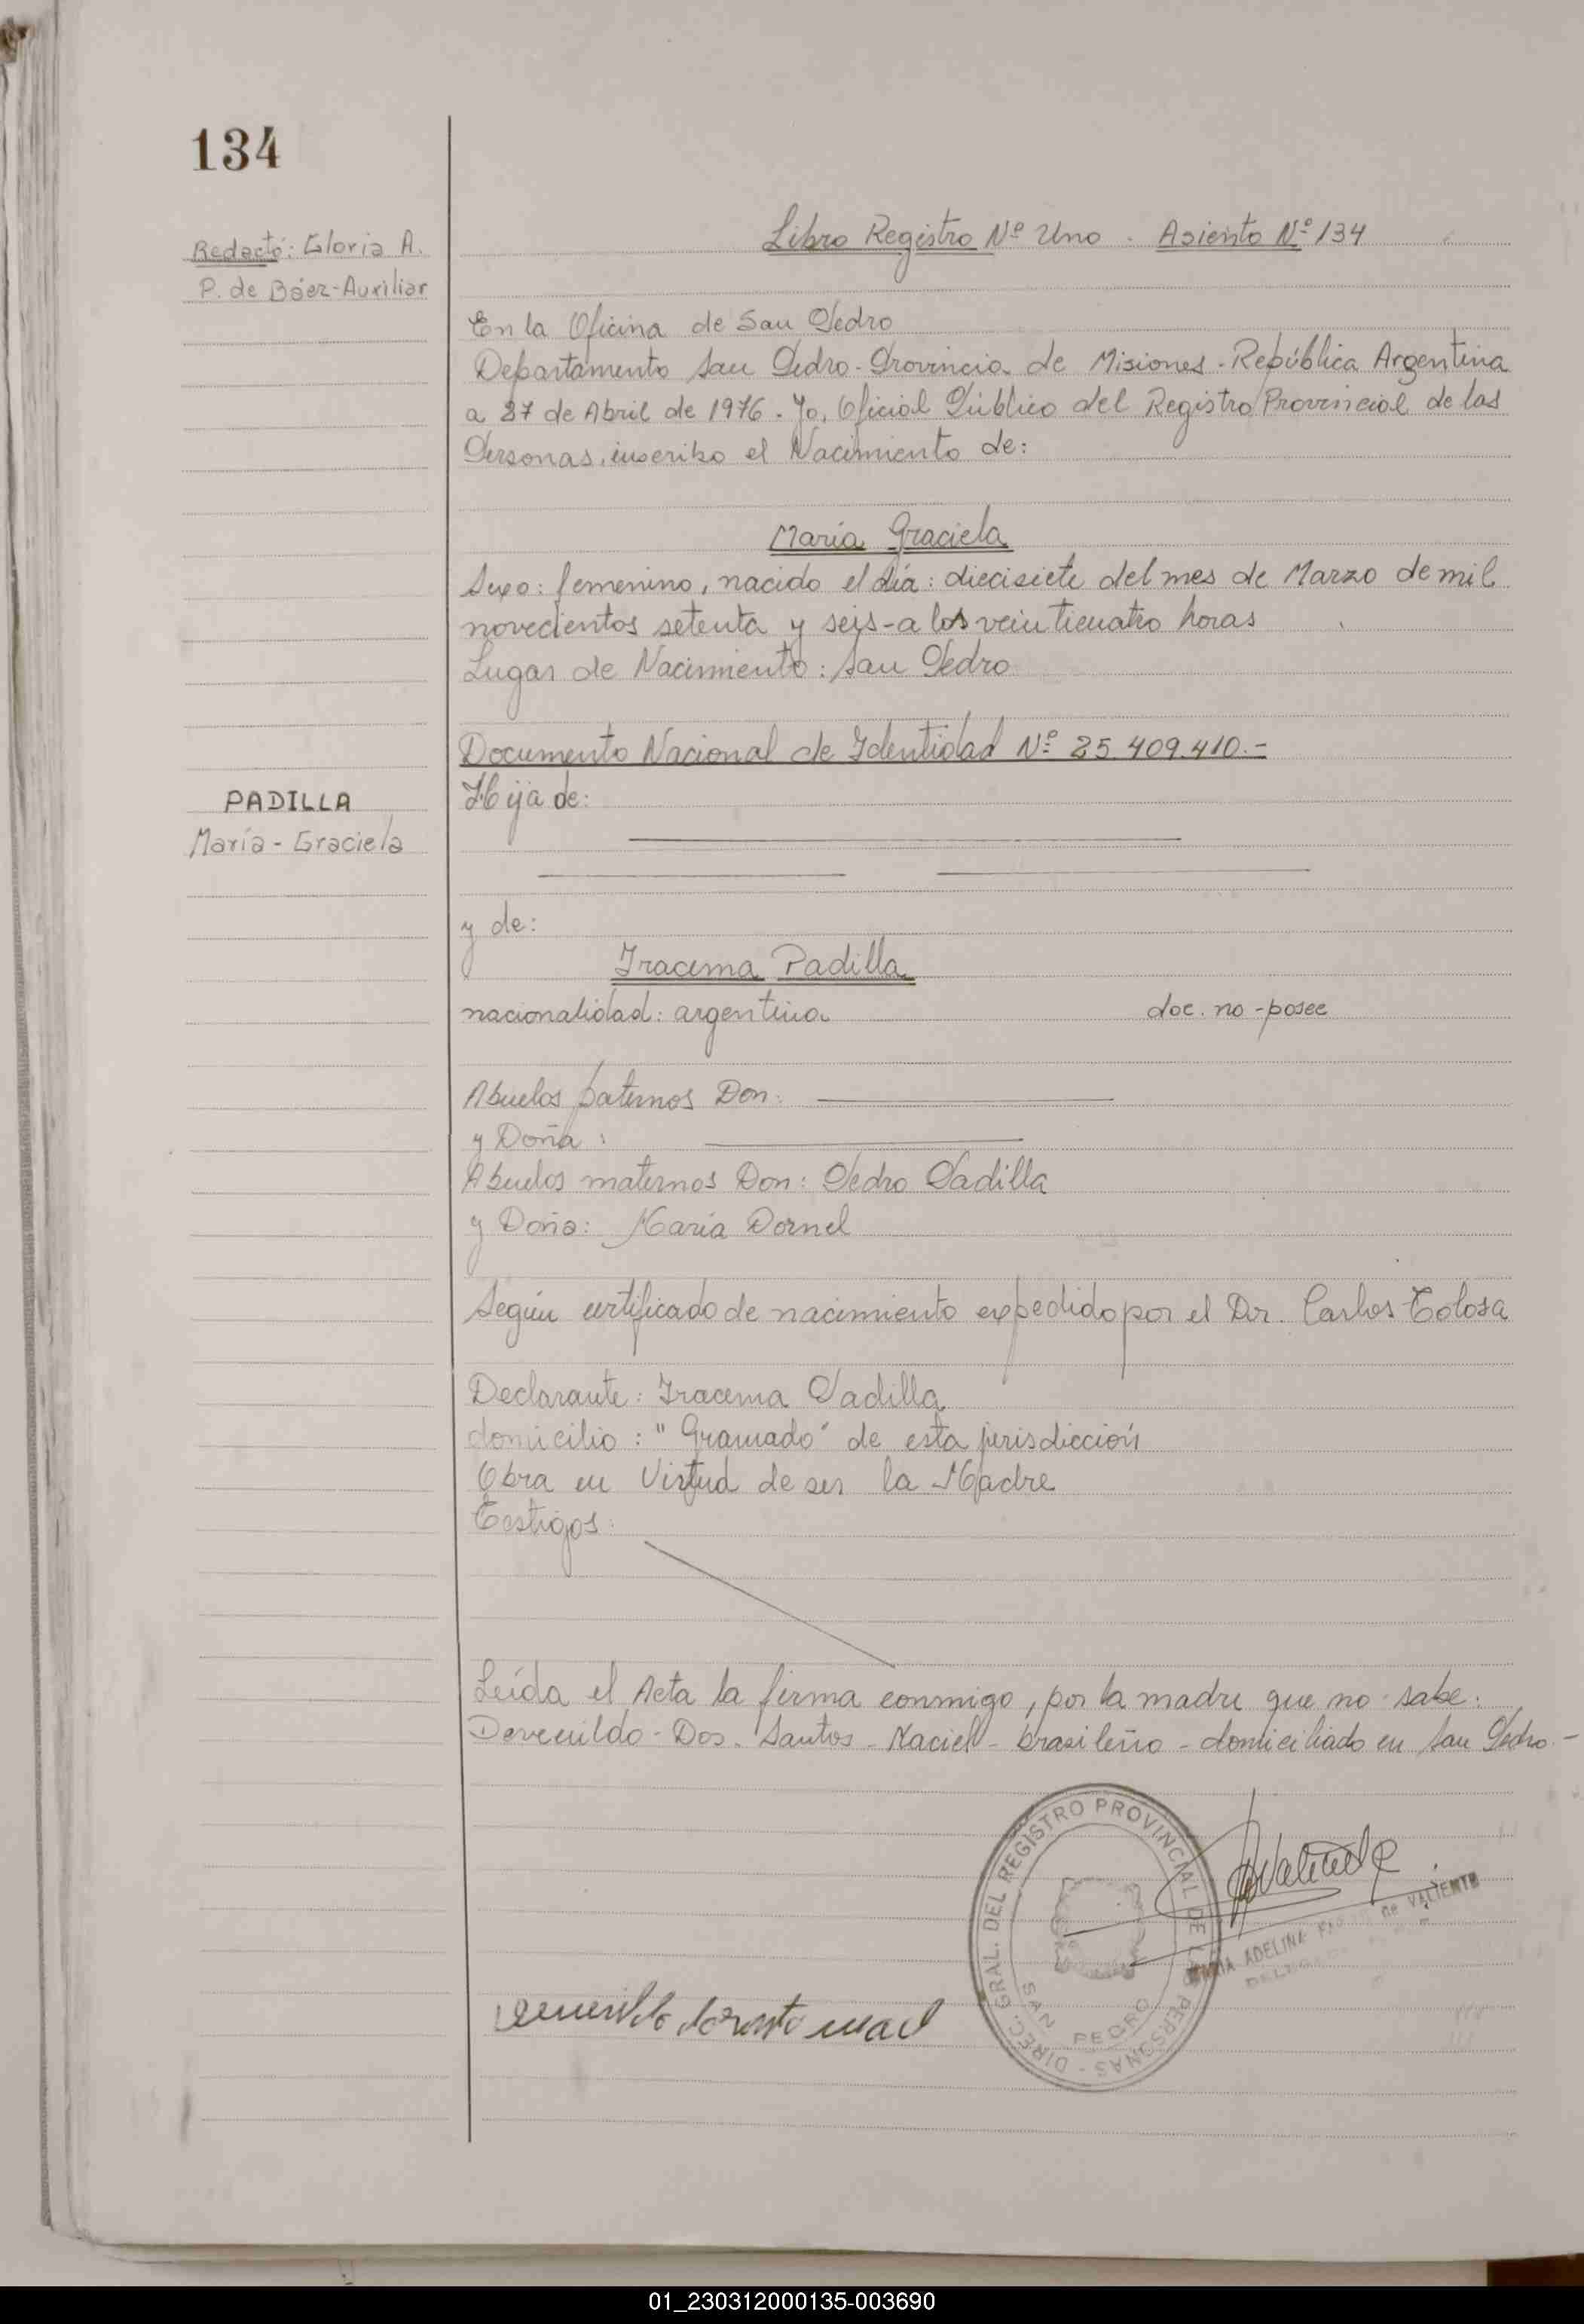 134
Redactó: Gloria A.
P. de Báez-Auxiliar
Libro Registro Nº Uno - Asiento Nº 134
En la Oficina de San Pedro
Departamento San Pedro - Provincia de Misiones - República Argentina
a 27 de Abril de 1976. Yo, Oficial Público del Registro Provincial de las
Personas, inscribo el Nacimiento de:
María Graciela
Sexo: femenino, nacido el día: diecisiete del mes de Marzo de mil
novecientos setenta y seis - a las veinticuatro horas
Lugar de Nacimiento: San Pedro
Documento Nacional de Identidad Nº 25.409.410.-
PADILLA
María - Graciela
Hija de:
y de:
Iracema Padilla
nacionalidad: argentina doc. no - posee
Abuelos paternos Don:
y Doña:
Abuelos maternos Don: Pedro Padilla
y Doña: María Dornel
Según certificado de nacimiento expedido por el Dr. Carlos Tolosa
Declarante: Iracema Padilla
domicilio: "Gramado" de esta jurisdicción
Obra en Virtud de ser la Madre
Testigos:
Leída el Acta la firma conmigo, por la madre que no - sabe:
Dos - Santos - Maciel - brasileño - domiciliado en San Pedro -
DIREC. GRAL. DEL REGISTRO PROVINCIAL DE LAS PERSONAS -
SAN PEDRO
ADELINA de VALIENTE
01_230312000135-003690